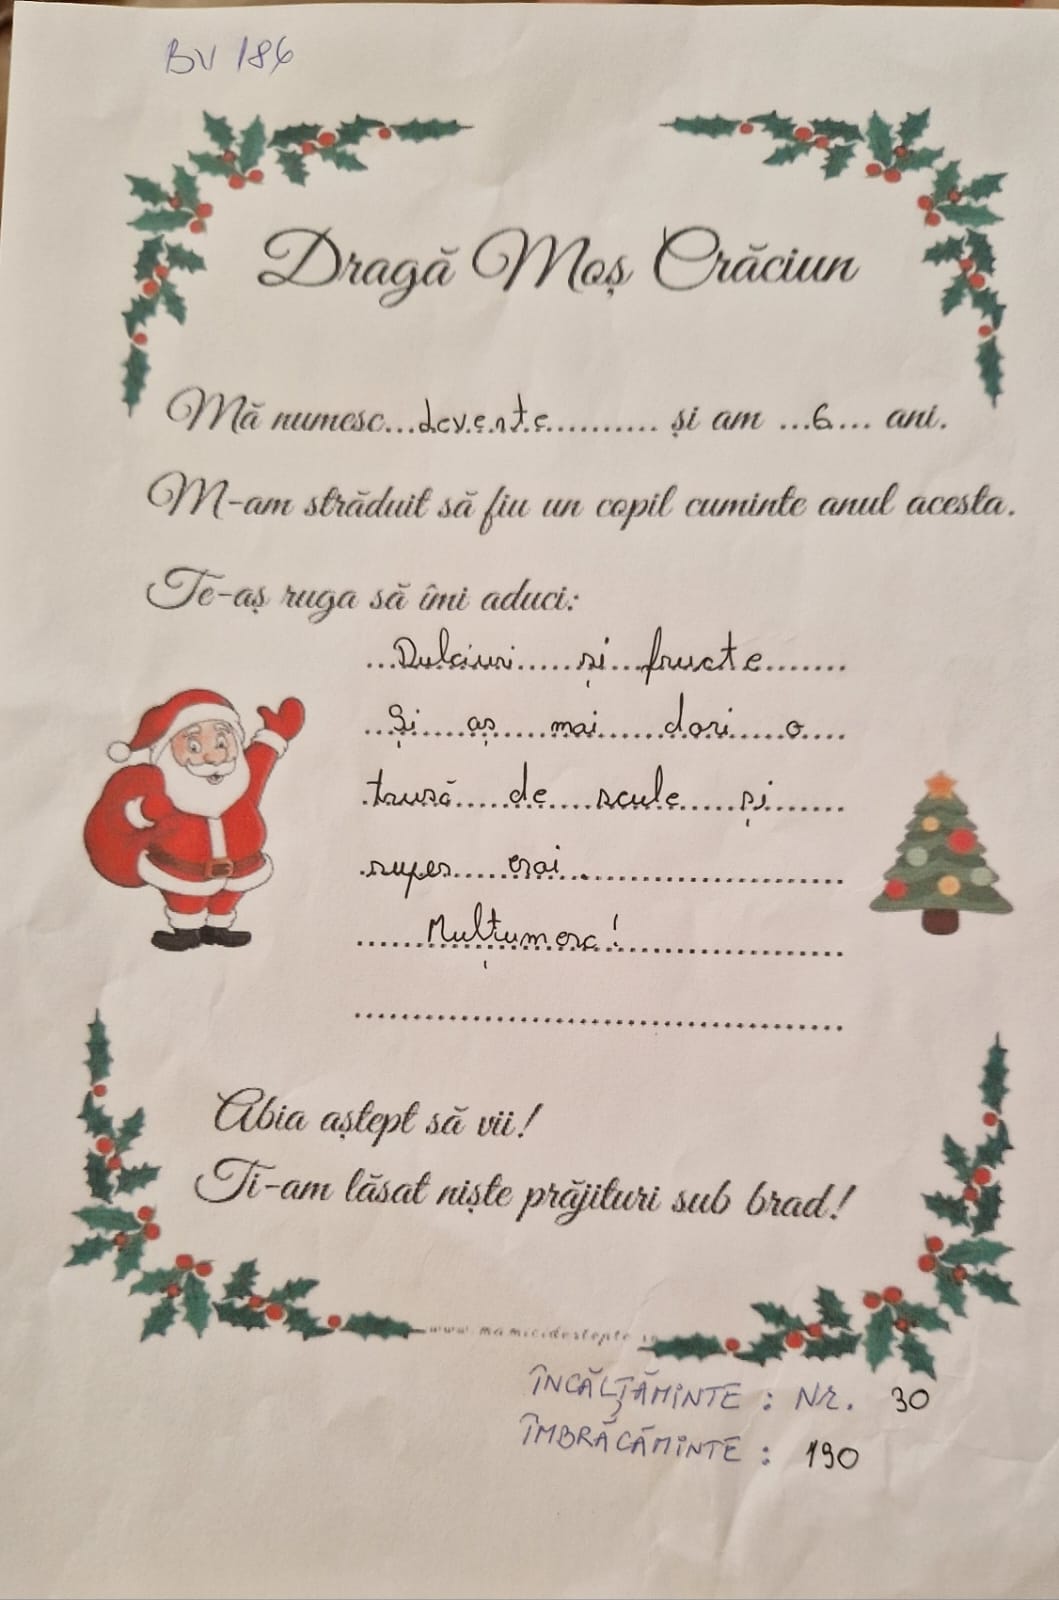 BV 186
Dragă Moș Crăciun
Mă numesc...levente.......... și am ...6.... ani.
M-am străduit să fiu un copil cuminte anul acesta.
Te-aș ruga să îmi aduci:
...Dulciuri.....și...fructe.......
..Și.....aș.....mai.....dori.....o....
.trusă.....de....scule.....și.......
.super.....eroi..............................
.....Mulțumesc!............................
Abia aștept să vii!
Ti-am lăsat niște prăjituri sub brad!
www.mamicidestepte.ro
ÎNCĂLȚĂMINTE : Nr. 30
ÎMBRĂCĂMINTE : 190